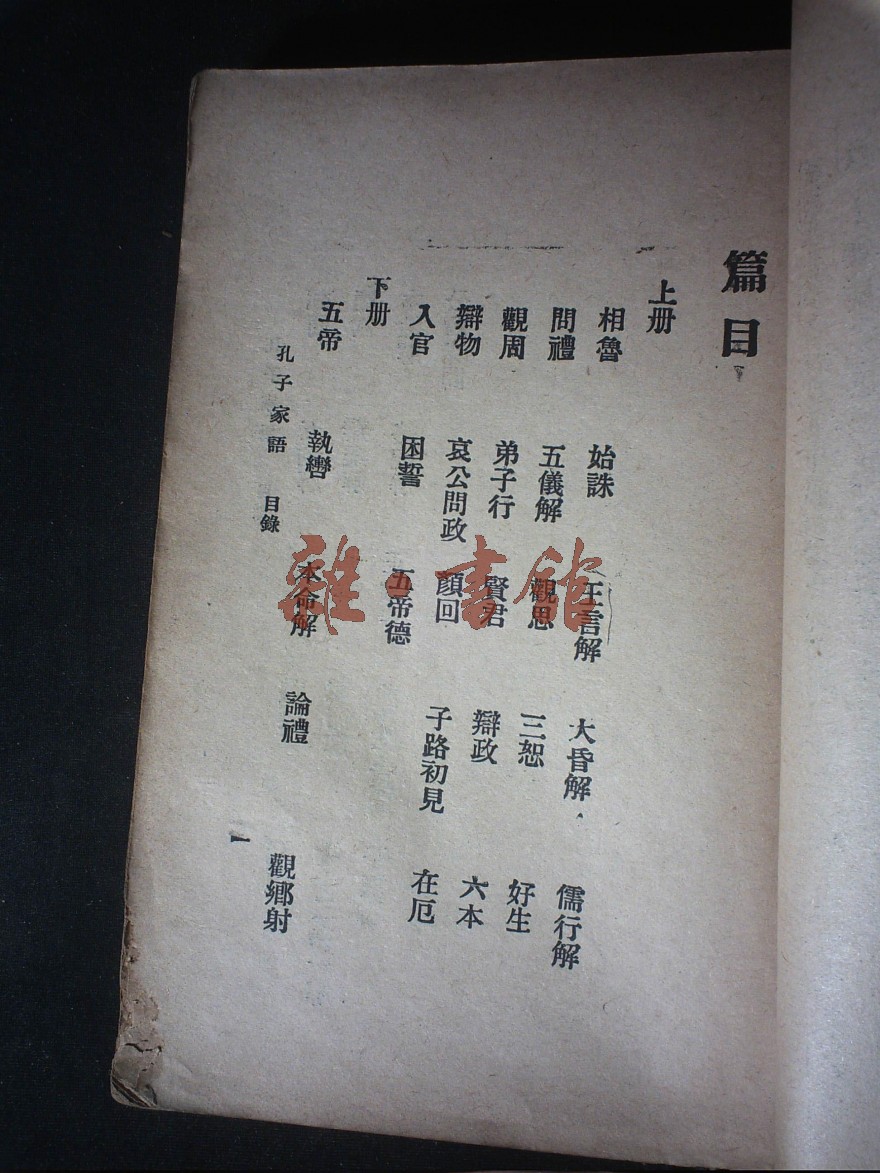 篇目
上册
相魯 始誅 王言解 大昏解 儒行解
問禮 五儀解 觀思 三恕 好生
觀周 弟子行 賢君 辯政 六本
辯物 哀公問政 顏回 子路初見 在厄
入官 困誓 五帝德
下册
五帝 執轡 本命解 論禮 觀鄉射
孔子家語 目錄 一
雜·書館